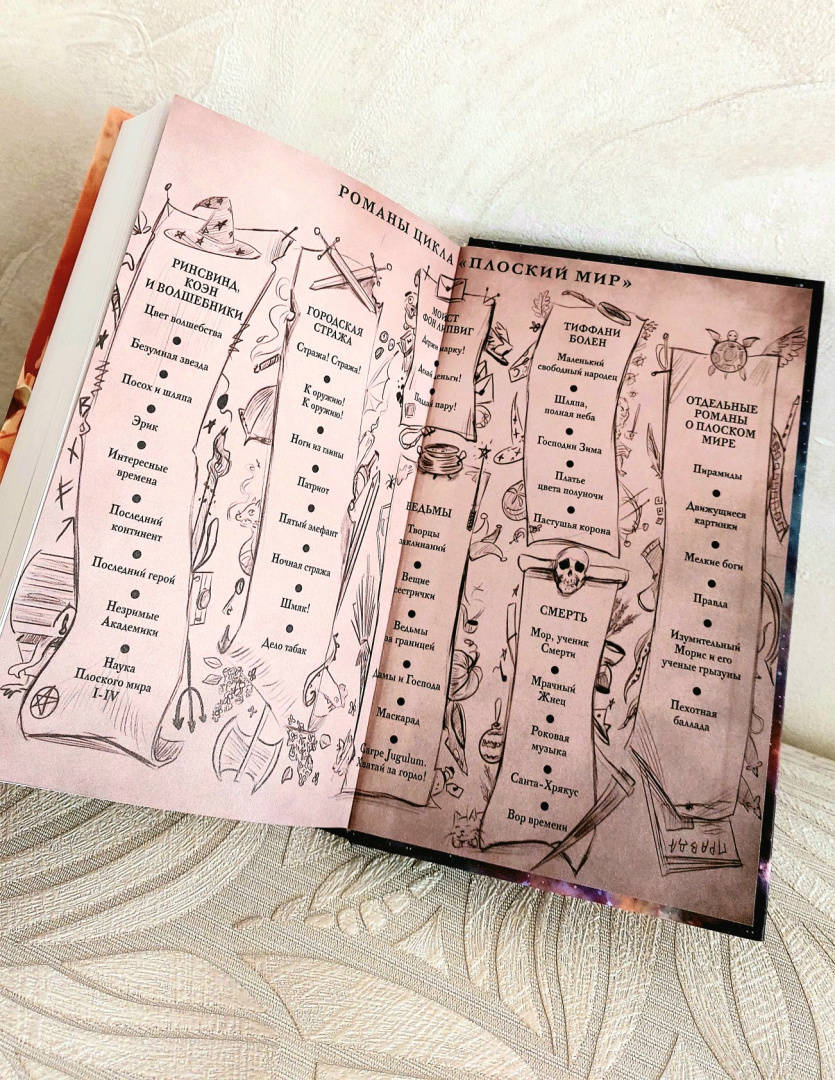 РОМАНЫ ЦИКЛА «ПЛОСКИЙ МИР»
РИНСВИНД,
КОЭН
И ВОЛШЕБНИКИ
Цвет волшебства
Безумная звезда
Посох и шляпа
Эрик
Интересные
времена
Последний
континент
Последний герой
Незримые
Академики
Наука
Плоского мира
I-IV
ГОРОДСКАЯ
СТРАЖА
Стража! Стража!
К оружию!
К оружию!
Ноги из глины
Патриот
Пятый элефант
Ночная стража
Шмяк!
Дело табак
МОЙСТ
ФОН ЛИПВИГ
марку!
пару!
ВЕДЬМЫ
Творцы
заклинаний
Вещие
сестрички
Ведьмы
за границей
Дамы и Господа
Маскарад
Carpe Jugulum.
Хватай за горло!
ТИФФАНИ
БОЛЕН
Маленький
свободный народец
Шляпа,
полная неба
Господин Зима
Платье
цвета полуночи
Пастушья корона
СМЕРТЬ
Мор, ученик
Смерти
Мрачный
Жнец
Роковая
музыка
Санта-Хрякус
Вор времени
ОТДЕЛЬНЫЕ
РОМАНЫ
О ПЛОСКОМ
МИРЕ
Пирамиды
Движущиеся
картинки
Мелкие боги
Правда
Изумительный
Морис и его
ученые грызуны
Пехотная
баллада
ПРАВДА